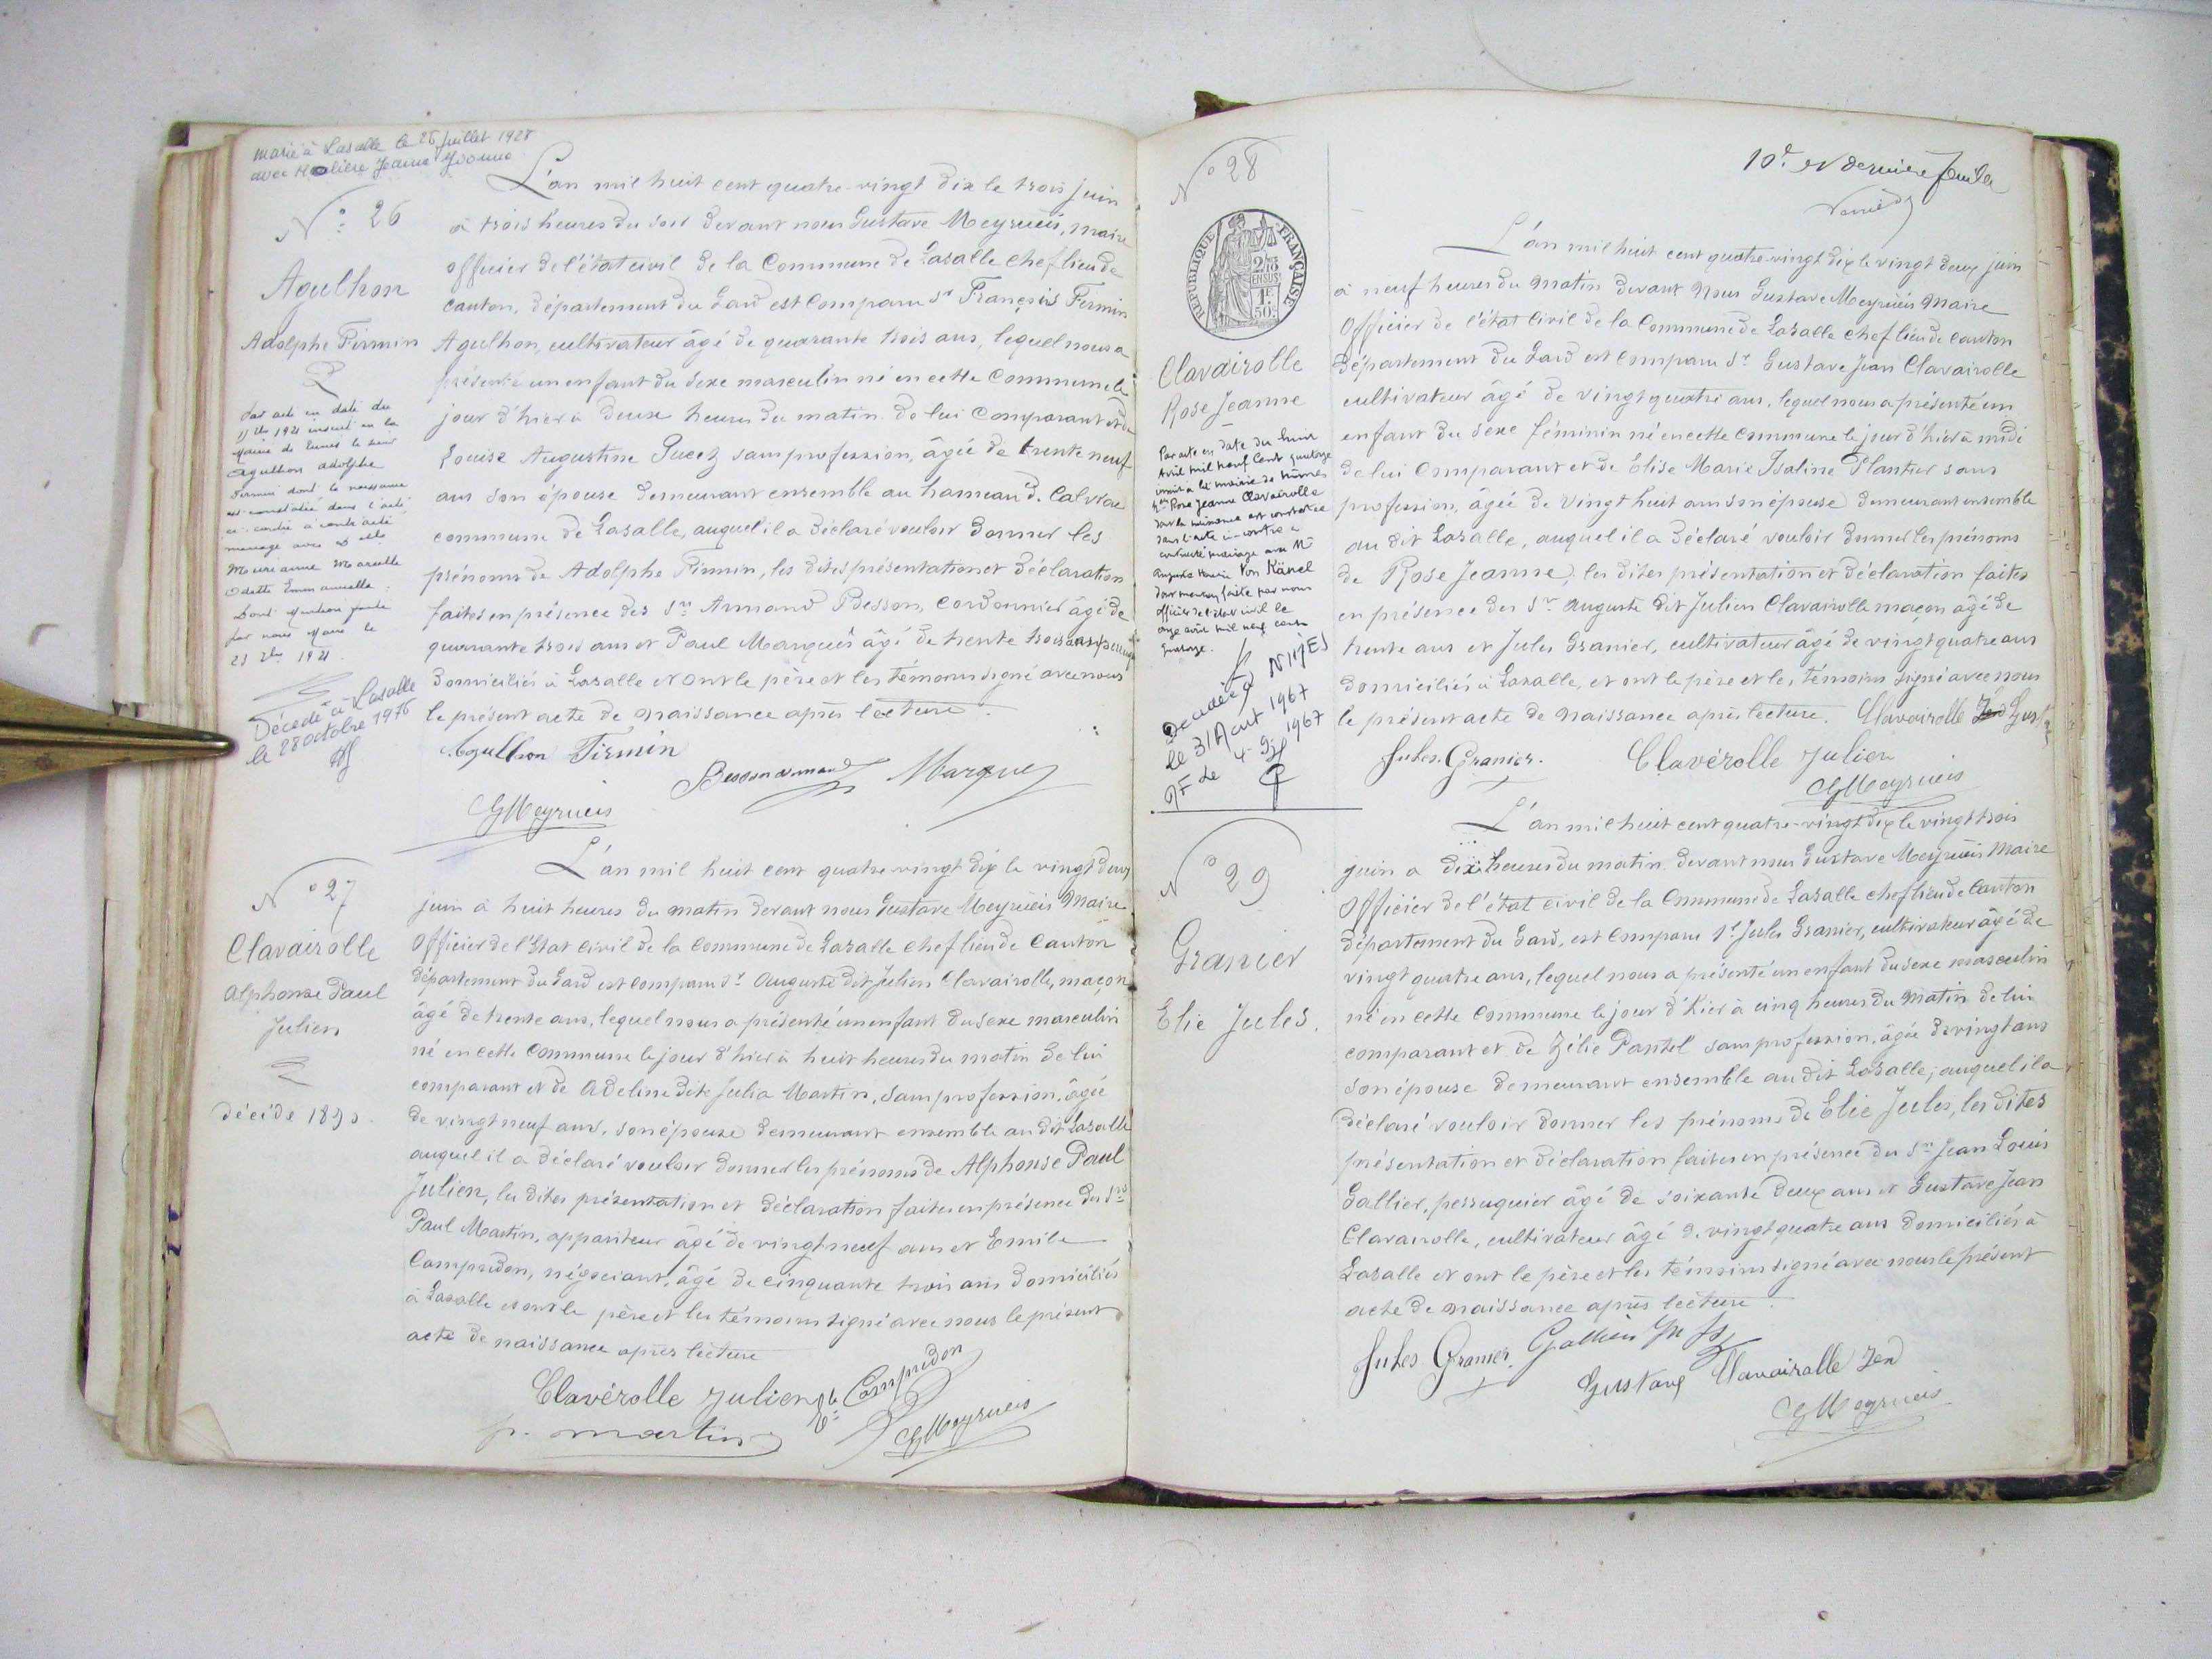 marié à Lasalle le 26 juillet 1928
avec Molière Jeanne Yvonne
N° 26
Agulhon
Adolphe Firmin
Par acte en date du
11 1921 inscrit en la
Mairie de le sieur
Agulhon Adolphe
Firmin dont la naissance
est constatée dans l'acte
ci-contre a contracté
mariage avec Dlle
Marcelle
Odette Emmanuelle
Dont mention faite
par nous Maire le
23 1921.
Décédé à Lasalle
le 28 octobre 1976
L'an mil huit cent quatre-vingt dix le trois juin
à trois heures du soir devant nous Gustave Meyrueis, maire
officier de l'état civil de la Commune de Lasalle chef lieu de
canton, département du Gard est comparu Sr François Firmin
Agulhon, cultivateur âgé de quarante trois ans, lequel nous a
présenté un enfant du sexe masculin né en cette commune le
jour d'hier à deux heures du matin de lui comparant et de
Louise Augustine Puech sans profession, âgée de trente neuf
ans son épouse demeurant ensemble au hameau de Calviac
commune de Lasalle, auquel il a déclaré vouloir donner les
prénoms de Adolphe Firmin, les dites présentation et déclaration
faites en présence des Srs Armand Besson, cordonnier âgé de
quarante trois ans et Paul Marquès âgé de trente trois ans
domiciliés à Lasalle et ont le père et les témoins signé avec nous
le présent acte de naissance après lecture.
Agulhon Firmin
Besson armand Marques
GMeyrueis
N° 27
Clavairolle
Alphonse Paul
Julien
décédé 1890.
L'an mil huit cent quatre-vingt dix le vingt deux
juin à huit heures du matin devant nous Gustave Meyrueis Maire
Officier de l'Etat civil de la commune de Lasalle chef lieu de Canton
département du Gard est comparu Sr Auguste dit Julien Clavairolle, maçon
âgé de trente ans, lequel nous a présenté un enfant du sexe masculin
né en cette Commune le jour d'hier à huit heures du matin de lui
comparant et de Adeline dite Julia Martin, sans profession, âgée
de vingt neuf ans, son épouse demeurant ensemble au dit Lasalle
auquel il a déclaré vouloir donner les prénoms de Alphonse Paul
Julien, les dites présentation et déclaration faites en présence des Srs
Paul Martin, appariteur âgé de vingt neuf ans et Emile
Campredon, négociant, âgé de cinquante trois ans domiciliés
à Lasalle et ont le père et les témoins signé avec nous le présent
acte de naissance après lecture
Clavérolle Julien Ele Campredon
p. martin GMeyrueis
10e et dernière feuille
N° 28
RÉPUBLIQUE FRANÇAISE
2/10 EN SUS
1F 50c
Clavairolle
Rose Jeanne
Par acte en date du huit
Avril mil neuf cent quatorze
inscrit à la mairie de Nimes
Dlle Rose Jeanne Clavairolle
dont la naissance est constatée
dans l'acte ci-contre a
contracté mariage avec Mr
Auguste Von Känel
dont mention faite par nous
officier de l'état civil le
onze avril mil neuf cent
quatorze.
Décédée à NIMES
le 31 Aout 1967
4-9-1967
L'an mil huit cent quatre-vingt dix le vingt deux juin
à neuf heures du matin devant Nous Gustave Meyrueis Maire
Officier de l'état Civil de la Commune de Lasalle chef lieu de canton
département du Gard est comparu Sr Gustave Jean Clavairolle
cultivateur âgé de vingt quatre ans, lequel nous a présenté un
enfant du sexe féminin né en cette commune le jour d'hier à midi
de lui comparant et de Elise Marie Isaline Plantier sans
profession, âgée de vingt huit ans son épouse demeurant ensemble
au dit Lasalle, auquel il a déclaré vouloir donner les prénoms
de Rose Jeanne, les dites présentation et déclaration faites
en présence des Srs Auguste dit Julien Clavairolle maçon âgé de
trente ans et Jules Granier, cultivateur âgé de vingt quatre ans
domiciliés à Lasalle, et ont le père et les témoins signé avec nous
le présent acte de naissance après lecture. Clavairolle Jen Gust
Jules Granier. Clavérolle Julien
GMeyrueis
N° 29
Granier
Elie Jules.
L'an mil huit cent quatre-vingt dix le vingt trois
juin a dix heures du matin devant nous Gustave Meyrueis Maire
Officier de l'état civil de la Commune de Lasalle chef lieu de Canton
département du Gard, est comparu Sr Jules Granier, cultivateur âgé de
vingt quatre ans, lequel nous a présenté un enfant du sexe masculin
né en cette Commune le jour d'hier à cinq heures du Matin de lui
comparant et de Zélie Pantel sans profession, âgée de vingt ans
son épouse demeurant ensemble au dit Lasalle; auquel il a
déclaré vouloir donner les prénoms de Elie Jules, les dites
présentation et déclaration faites en présence des Srs Jean Louis
Gallier, perruquier âgé de soixante deux ans et Gustave Jean
Clavairolle, cultivateur âgé de vingt quatre ans domiciliés à
Lasalle et ont le père et les témoins signé avec nous le présent
acte de naissance après lecture.
Jules Granier. Gallier
Gustave Clavairolle Jen
GMeyrueis